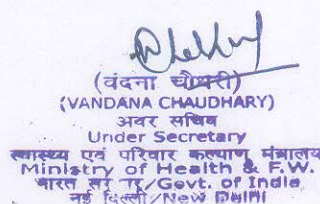 (वंदना चौधरी)
(VANDANA CHAUDHARY)
अवर सचिव
Under Secretary
स्वास्थ्य एवं परिवार कल्याण मंत्रालय
Ministry of Health & F.W.
भारत /Govt. of India
नई दिल्ली/New Delhi